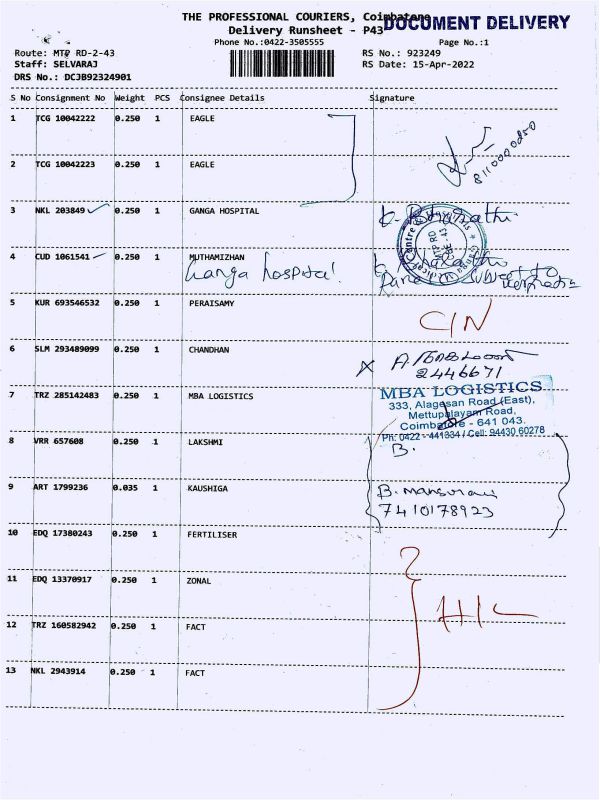 THE PROFESSIONAL COURIERS, Coimbatore
DOCUMENT DELIVERY
Delivery Runsheet - P43
Phone No.:0422-3505555
Page No.:1
Route: MTP RD-2-43
RS No.: 923249
Staff: SELVARAJ
RS Date: 15-Apr-2022
DRS No.: DCJB92324901
S No Consignment No Weight PCS Consignee Details Signature
1 TCG 10042222 0.250 1 EAGLE
8110000250
2 TCG 10042223 0.250 1 EAGLE
3 NKL 203849 0.250 1 GANGA HOSPITAL
4 CUD 1061541 0.250 1 MUTHAMIZHAN
Ganga hospital
Subject to
5 KUR 693546532 0.250 1 PERAISAMY
C/N
6 SLM 293489099 0.250 1 CHANDHAN
2446671
7 TRZ 285142483 0.250 1 MBA LOGISTICS
MBA LOGISTICS
333, Alagesan Road (East),
Mettupalayam Road,
Coimbatore - 641 043.
Ph: 0422 - 441334 / Cell: 94430 60278
8 VRR 657608 0.250 1 LAKSHMI
B.
9 ART 1799236 0.035 1 KAUSHIGA
7410178923
10 EDQ 17380243 0.250 1 FERTILISER
11 EDQ 13370917 0.250 1 ZONAL
12 TRZ 160582942 0.250 1 FACT
13 NKL 2943914 0.250 1 FACT